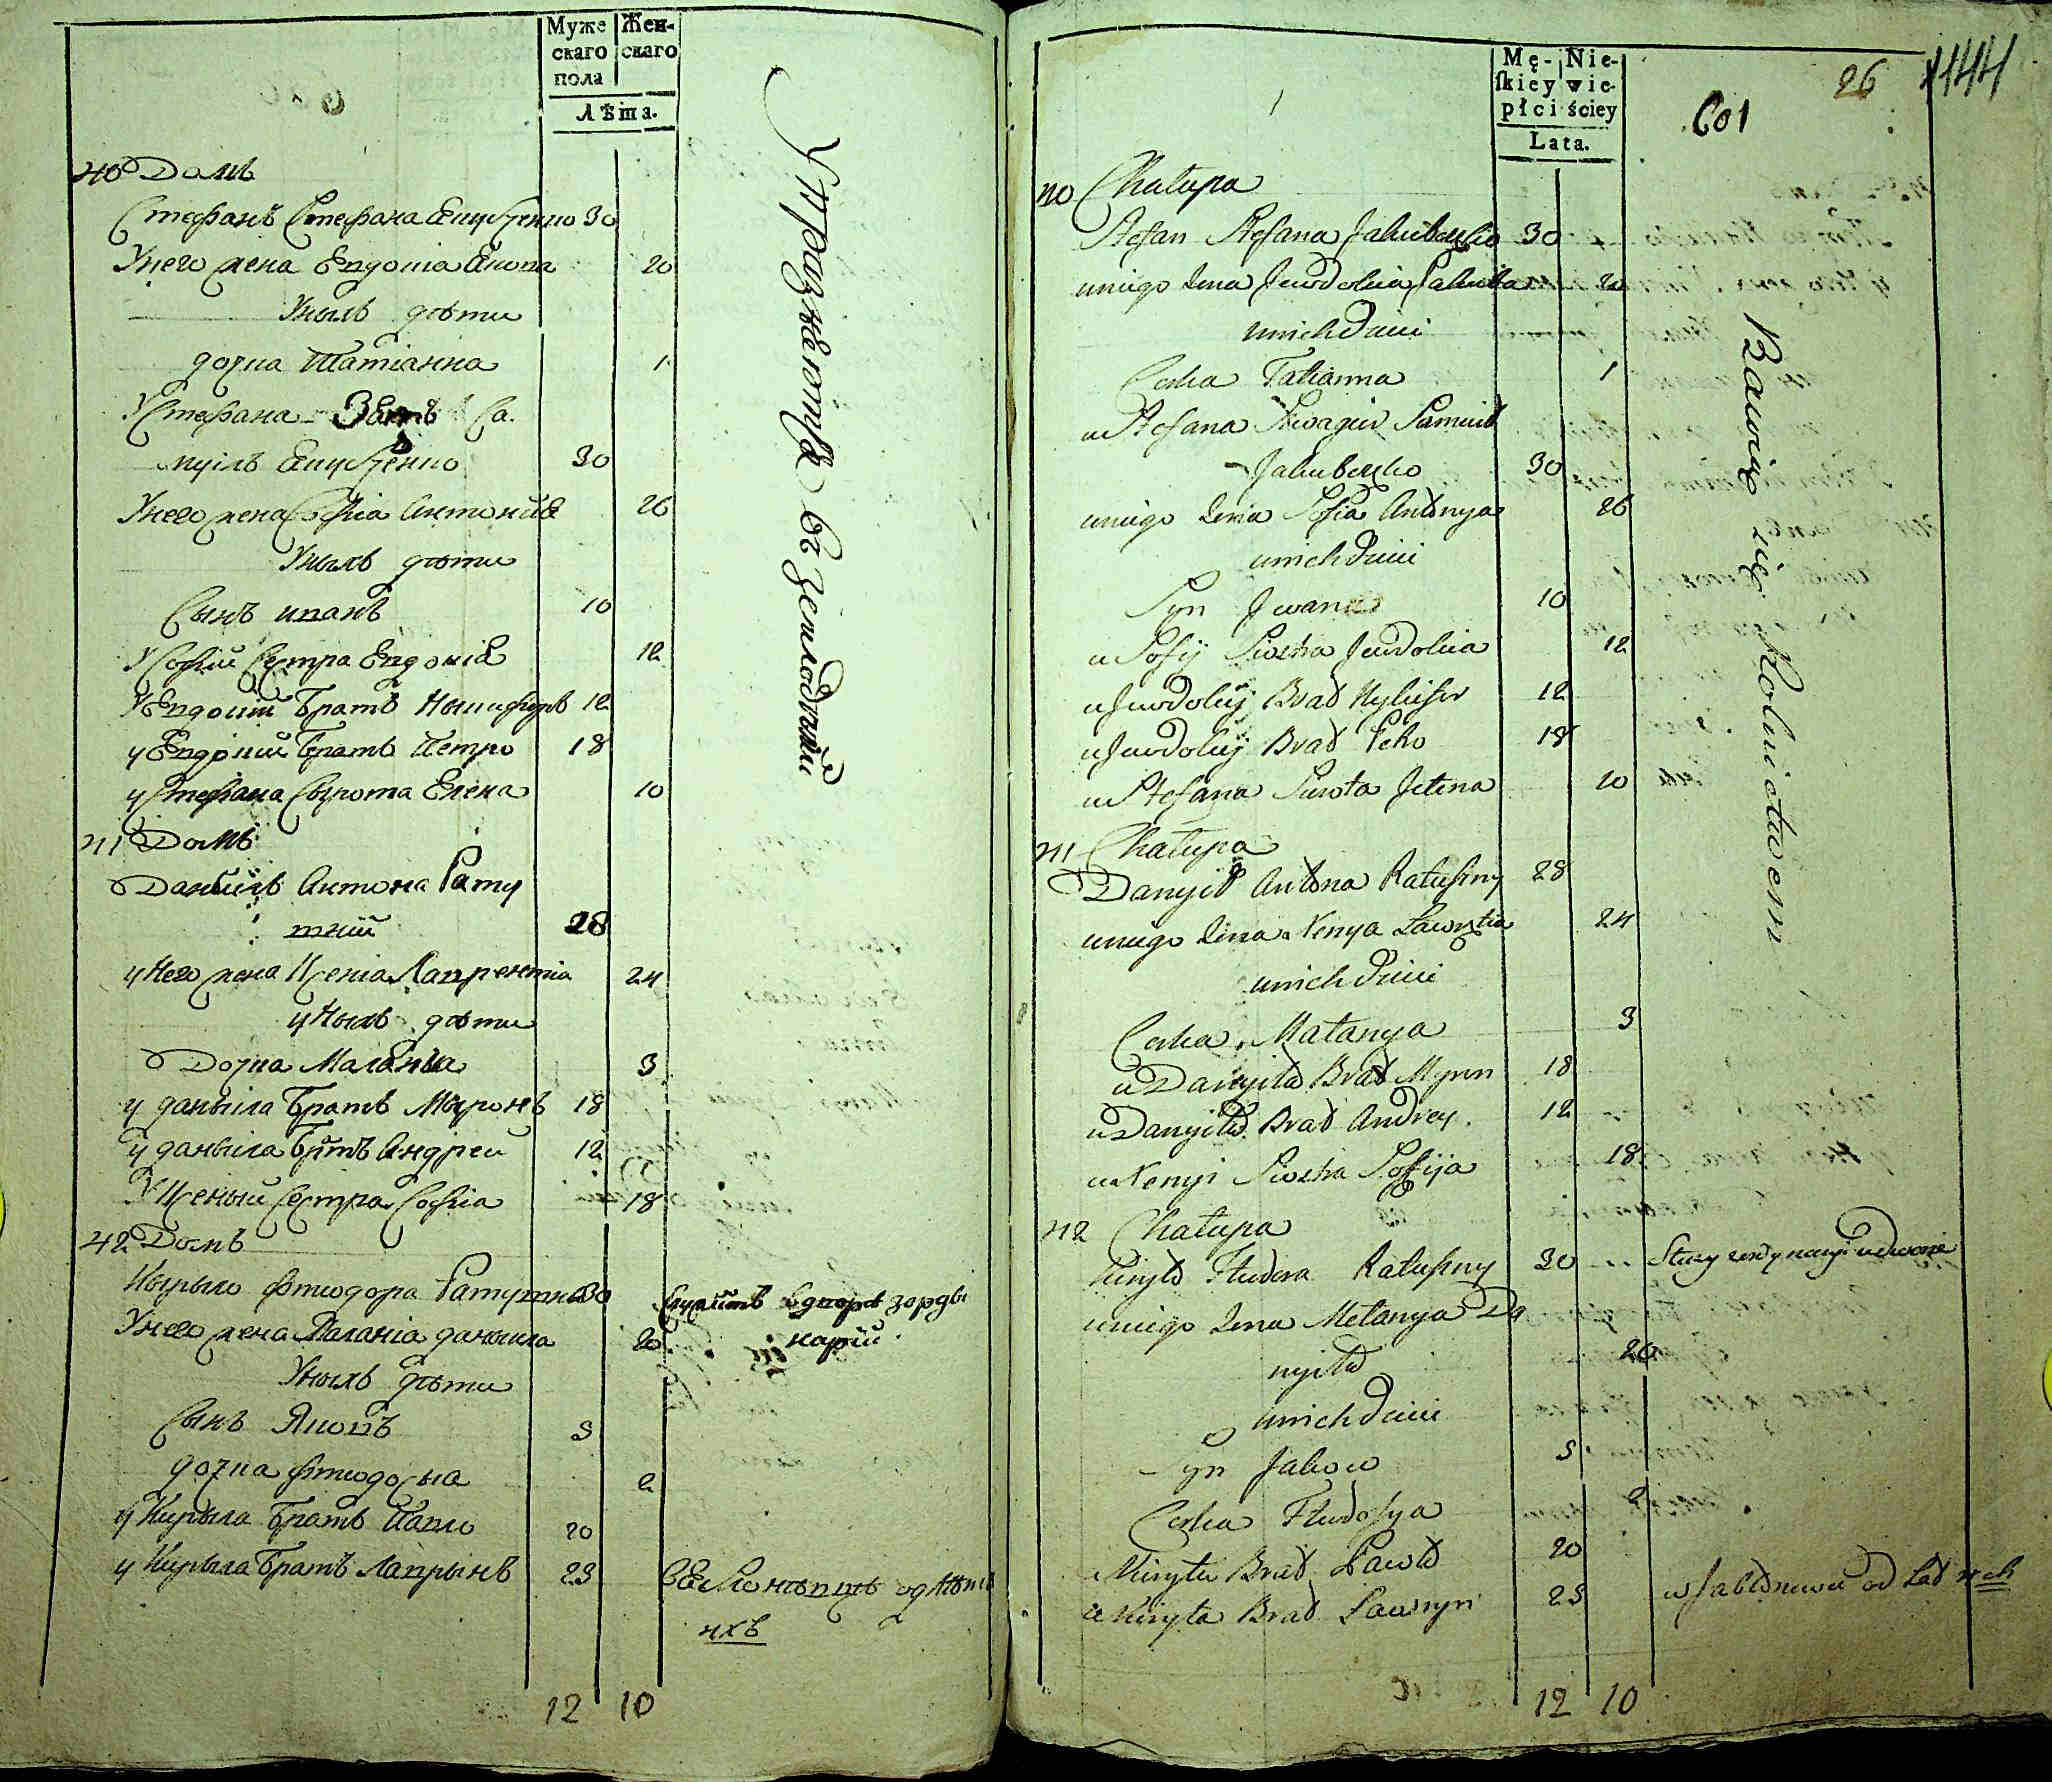 Муже
скаго
пола
Жен-
скаго
Лѣта.
40 Домъ
Стефанъ Стефана Якубченко 30
У него жена Евдокіа Якова 20
У ныхъ дѣти
дочка Татіанна 1
У Стефана Зять Са.
муілъ Якубченко 30
У него жена Софіа Антоніа 26
У ныхъ дѣти
Сынъ иванъ 10
У Софіи Сестра Евдокіа 12
У Евдокіи братъ Ныкифоръ 12
у Евдокіи братъ Петро 18
у Стефана Сырота Елена 10
41 Домъ
Даныилъ Антона Рату
шній 28
у Него жена Ксеніа Лаврентіа 24
у Ныхъ дѣти
Дочка Маланка 3
у даныла братъ Мыронъ 18
у даныла братъ Андрей 12
У Ксеныи Сестра Софіа 18
42 Домъ
Кырыло Фтиодора Ратушній 30 Служитъ в дворѣ
У него жена Маланіа даныила 20
У ныхъ дѣти
Сынъ Яковъ 5
дочка Фтиодосыа 2
у Кирыла братъ Павло 20
у Кирыла братъ Лаврынъ 25
12 10
Упражняются въ земледѣлии
Mę-
skiey
płci
Nie-
wie-
ściey
Lata.
601
26
144
40 Chałupa
Stefan Stefana Jakubczko 30
u niego żena Jewdokia Jakuba 20
u nich dzieci
Corka Tatianna 1
u Stefana Szwagier Samuił
Jakubczko 30
u niego żena Sofia Antonya 26
u nich dzieci
Syn Jwan 10
u Sofij Siostra Jewdokia 12
u Jewdokij Brat Nykifor 12
u Jewdokij Brat Petro 18
u Stefana Surota Jelena 10
41 Chałupa
Danyił Antona Ratuszny 28
u niego żena Xenya Ławrętia 24
u nich dzieci
Corka Małanya 3
u Danyiła Brat Myron 18
u Danyiła Brat Andrey 12
u Xenyi Siostra Soffija 18
42 Chałupa
Kiryło Fteodora Ratuszny 30
u niego żena Mełanya Da
nyiła 20
u nich dzieci
Syn Jakow 5
Corka Fteodosya 2
u Kiryła Brat Pawło 20
u Kiryła Brat Ławryn 25 w Jabłonowie od Lat 4ch
12 10
Bawią się Rolnictwem